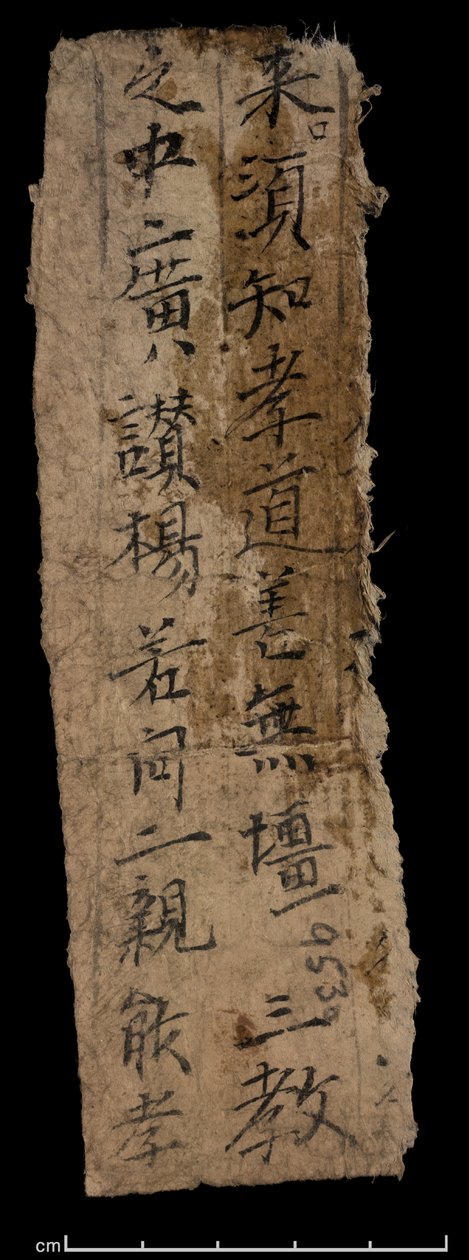 来須知孝道善無壃 三教
之中廣讃楊若向二親能孝
9539
cm